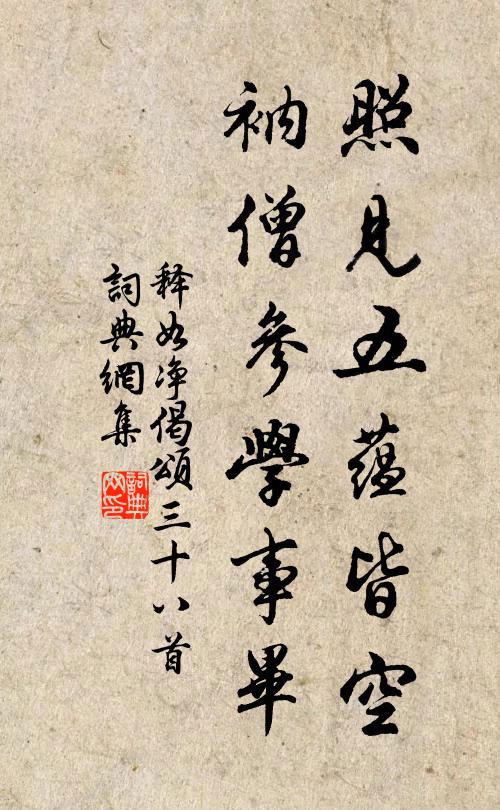 照見五蘊皆空
衲僧參學事畢
釋如淨偈頌三十八首
詞典網集
詞典網印